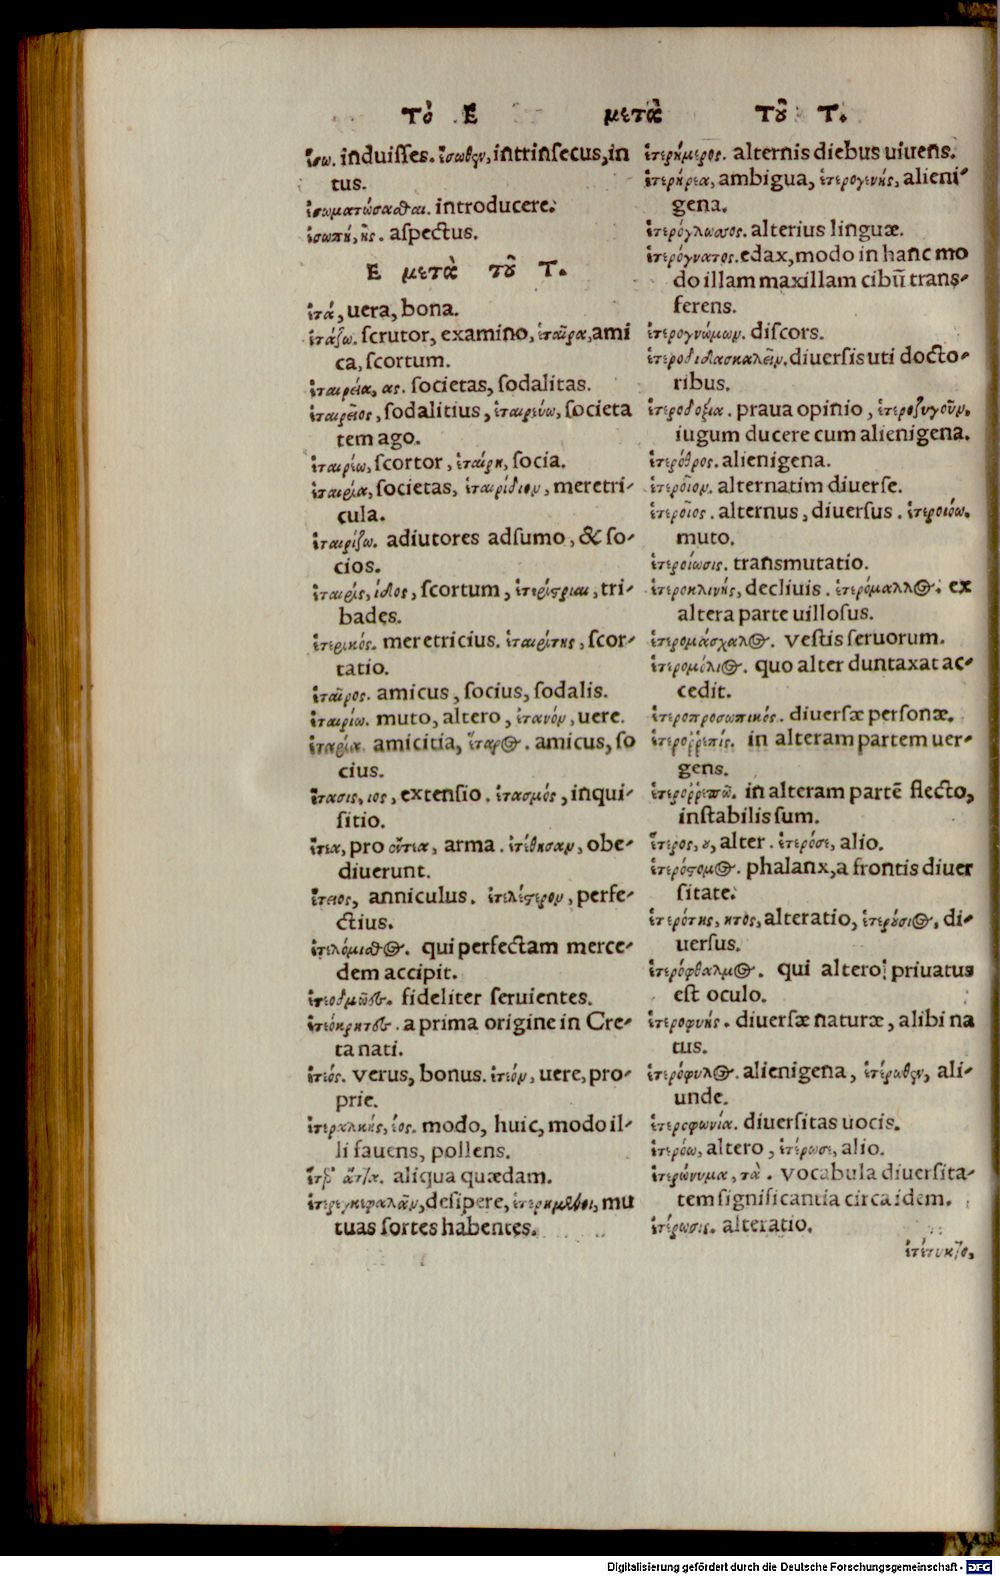 Τὸ Ε μετὰ τοῦ Τ.
ἔσω. induisses. ἔσωθεν, intrinsecus, in
tus.
ἐσωματώσασθαι. introducere.
ἐσωπὴ, ῆς. aspectus.
Ε μετὰ τοῦ Τ.
ἐτά, uera, bona.
ἐτάζω. scrutor, examino, ἑταῖρα, ami
ca, scortum.
ἑταιρεία, ας. societas, sodalitas.
ἑταιρεῖος, sodalitius, ἑταιρεύω, societa
tem ago.
ἑταιρέω, scortor, ἑταίρη, socia.
ἑταιρία, societas, ἑταιρίδιον, meretri-
cula.
ἑταιρίζω. adiutores adsumo, & so-
cios.
ἑταιρὶς, ίδος, scortum, ἑτερίστριαι, tri-
bades.
ἑτερικός. meretricius. ἑταιρίτης, scor-
tatio.
ἑταῖρος. amicus, socius, sodalis.
ἑταιρέω. muto, altero, ἐτανόν, uere.
ἑταρία. amicitia, ἕταρος. amicus, so
cius.
ἔτασις, ιος, extensio. ἐτασμός, inqui-
sitio.
ἔτεα, pro οὔτεα, arma. ἐτίθησαν, obe-
diuerunt.
ἔτειος, anniculus. ἐτελέστερον, perfe-
ctius.
ἐτελόμισθος. qui perfectam merce-
dem accipit.
ἐτεοδμῶες. fideliter seruientes.
ἐτεόκρητες. a prima origine in Cre-
ta nati.
ἐτεός. verus, bonus. ἐτεόν, uere, pro-
prie.
ἑτεραλκής, έος. modo, huic, modo il-
li fauens, pollens.
ἕτερ' ἄττα. aliqua quædam.
ἑτερεγκεφαλᾶν, desipere, ἑτερήμεροι, mu
tuas sortes habentes.
ἑτερήμερος. alternis diebus uiuens.
ἑτερήρεα, ambigua, ἑτερογενής, alieni-
gena.
ἑτερόγλωσσος. alterius linguæ.
ἑτερόγναθος. edax, modo in hanc mo
do illam maxillam cibū trans-
ferens.
ἑτερογνώμων. discors.
ἑτεροδιδασκαλεῖν. diuersis uti docto-
ribus.
ἑτεροδοξία. praua opinio, ἑτεροζυγοῦν.
iugum ducere cum alienigena.
ἑτερόθρος. alienigena.
ἑτεροῖον. alternatim diuerse.
ἑτεροῖος. alternus, diuersus. ἑτεροιόω.
muto.
ἑτεροίωσις. transmutatio.
ἑτεροκλινής, decliuis. ἑτερόμαλλος. ex
altera parte uillosus.
ἑτερομάσχαλος. vestis seruorum.
ἑτερομόλιος. quo alter duntaxat ac-
cedit.
ἑτεροπροσωπικός. diuersæ personæ.
ἑτεροῤῥεπής. in alteram partem uer-
gens.
ἑτεροῤῥεπῶ. in alteram partē flecto,
instabilis sum.
ἕτερος, ου, alter. ἑτερόσε, alio.
ἑτερόστομος. phalanx, a frontis diuer
sitate.
ἑτερότης, ητος, alteratio, ἑτερούσιος, di-
uersus.
ἑτερόφθαλμος. qui altero priuatus
est oculo.
ἑτεροφυής. diuersæ naturæ, alibi na
tus.
ἑτερόφυλος. alienigena, ἑτέρωθεν, ali-
unde.
ἑτεροφωνία. diuersitas uocis.
ἑτερόω, altero, ἑτέρωσε, alio.
ἑτερώνυμα, τὰ. vocabula diuersita-
tem significantia circa idem.
ἑτέρωσις. alteratio.
ἐτέτυκτο,
Digitalisierung gefördert durch die Deutsche Forschungsgemeinschaft - DFG